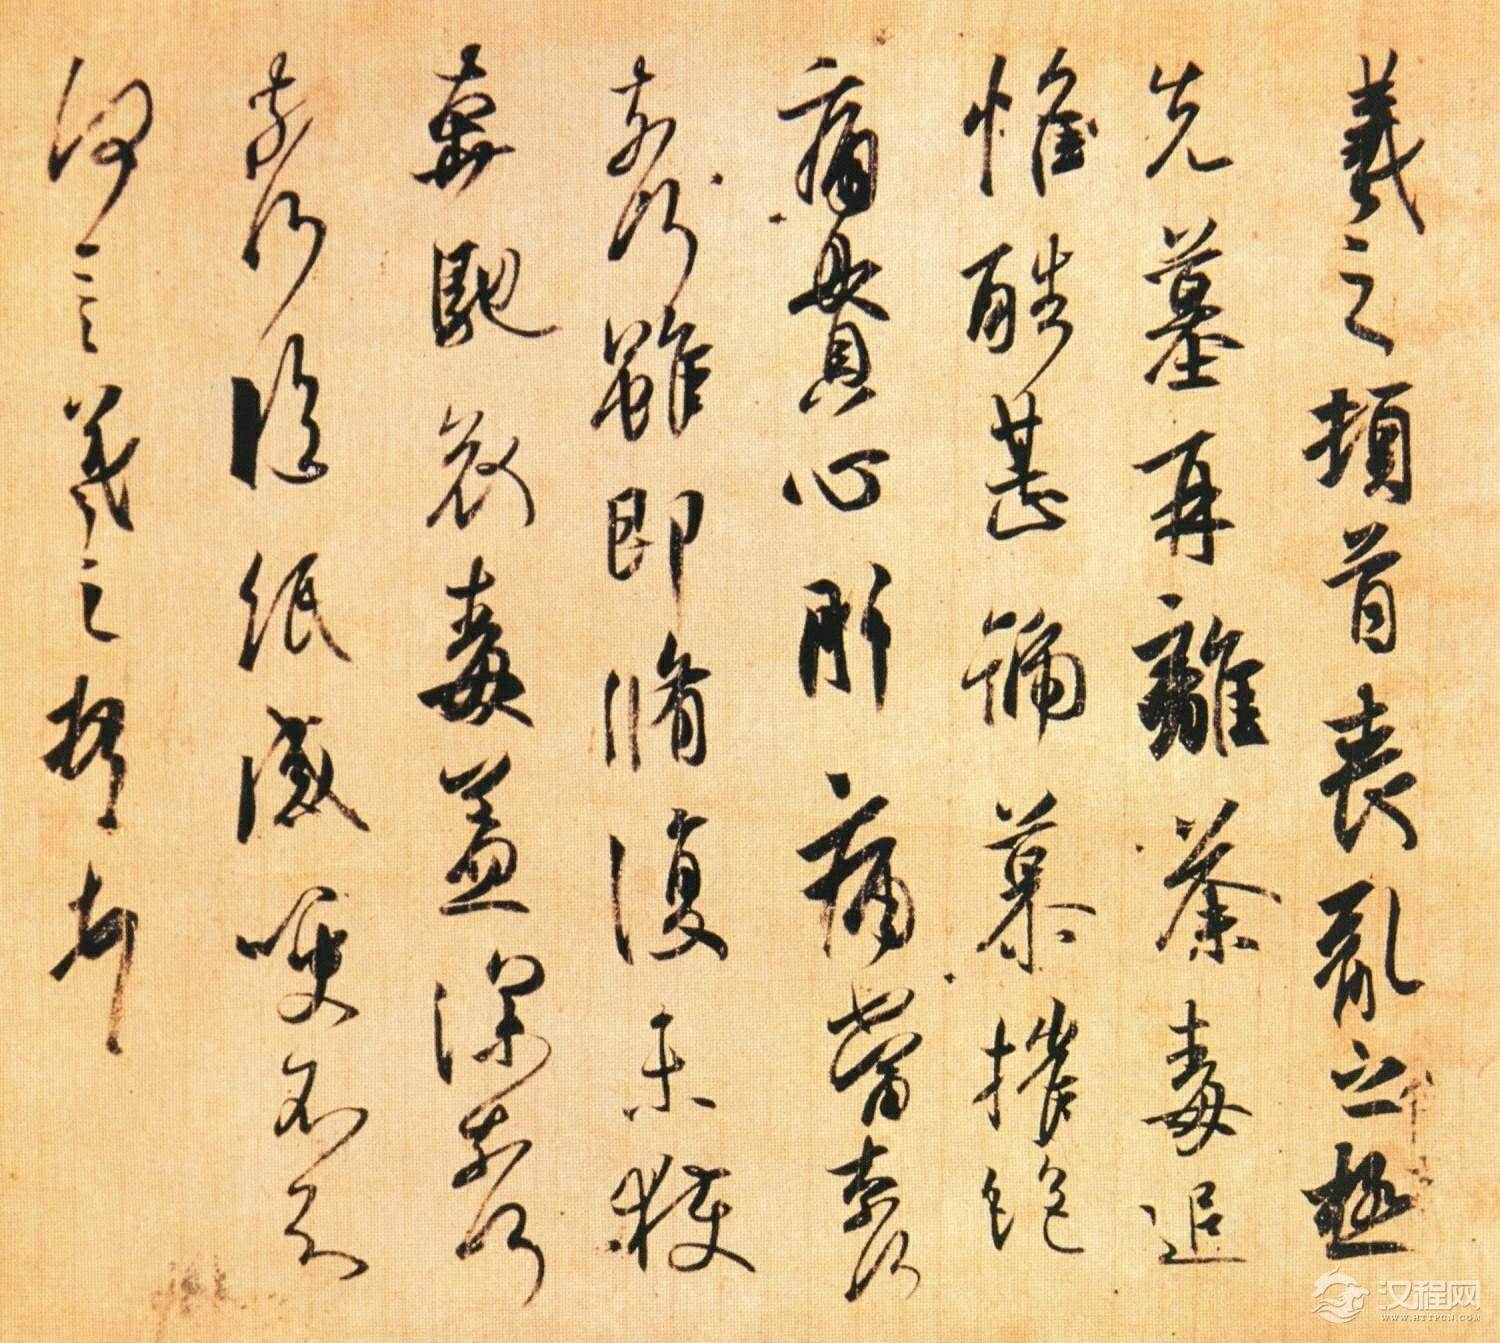 羲之頓首喪亂之極
先墓再離荼毒追
惟酷甚號慕摧絕
痛貫心肝痛當奈何
奈何雖即脩復未獲
奔馳哀毒益深奈何
奈何臨紙感哽不知
何言羲之頓首頓首
汉程网
WWW.HTTPCN.COM